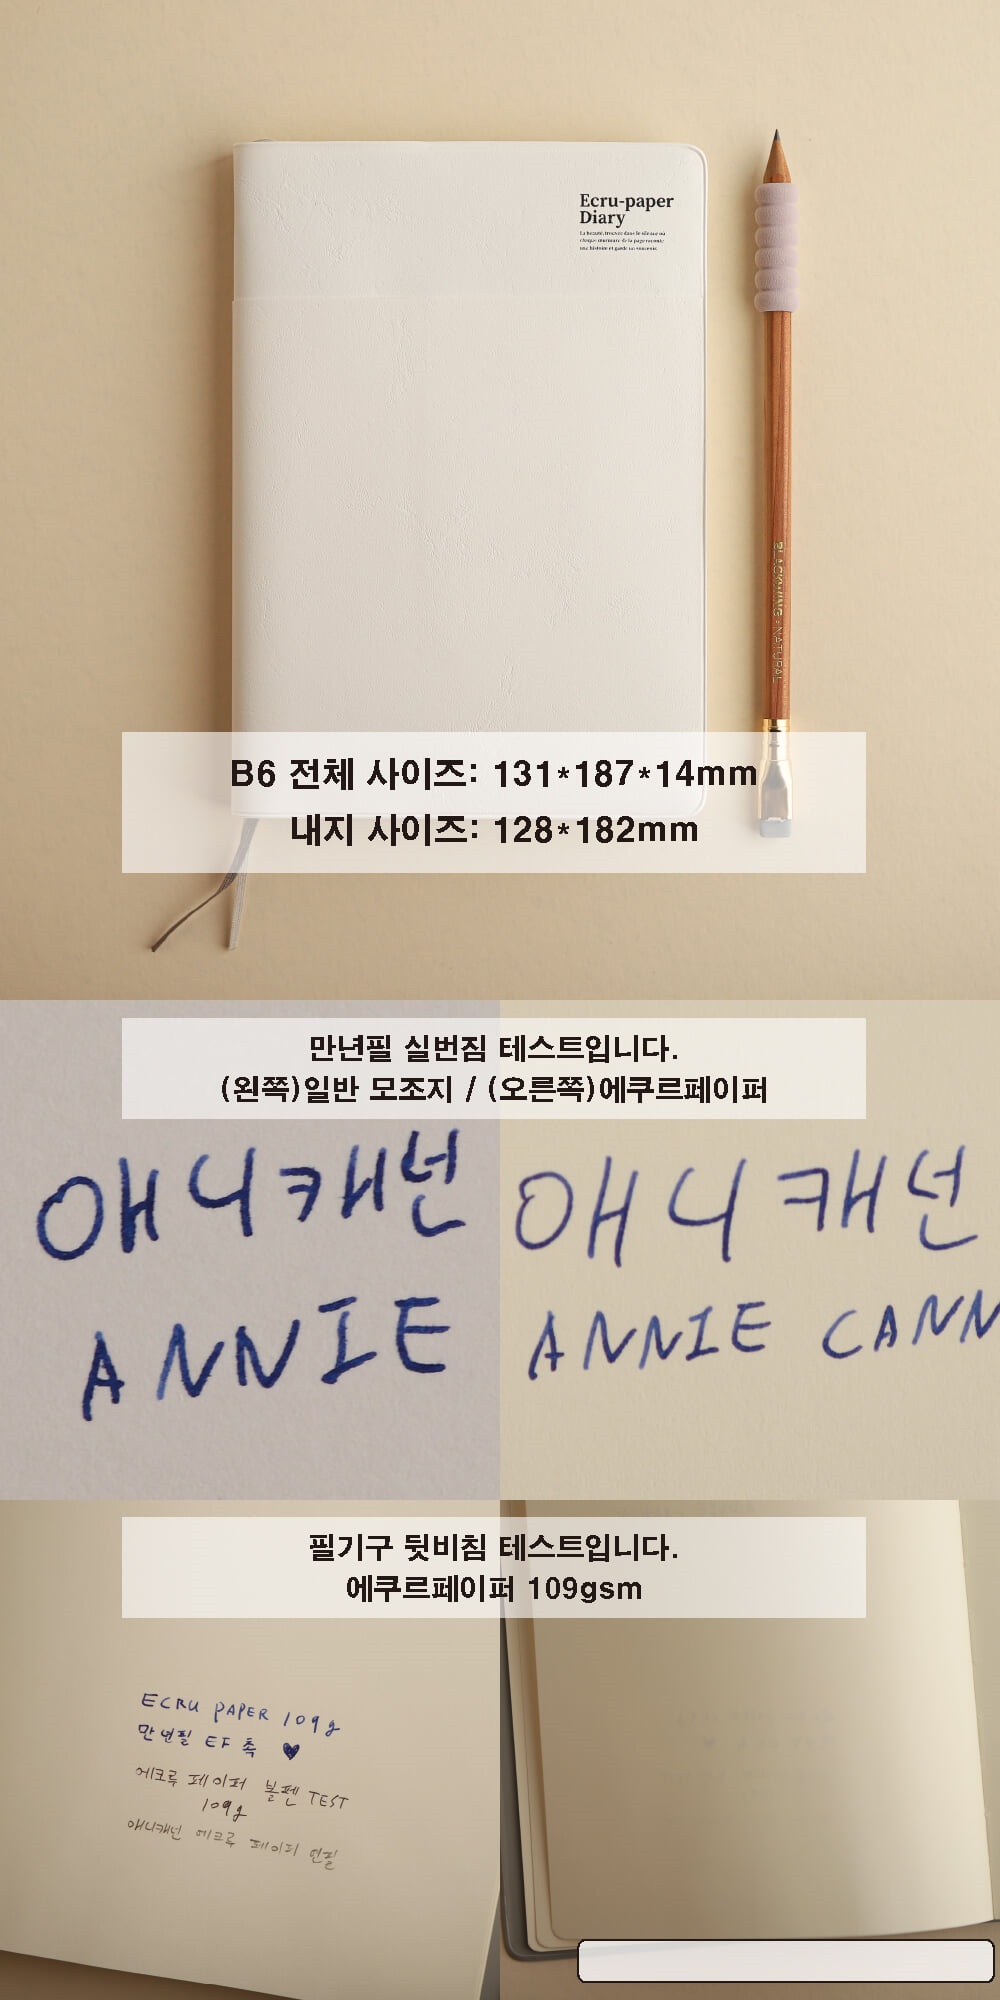 Ecru-paper
Diary
La beauté, trouvée dans le silence où
chaque murmure de la page raconte
une histoire et garde un souvenir.
BLACKWING · NATURAL
B6 전체 사이즈: 131*187*14mm
내지 사이즈: 128*182mm
만년필 실번짐 테스트입니다.
(왼쪽)일반 모조지 / (오른쪽)에쿠르페이퍼
애니캐넌
ANNIE
애니캐넌
ANNIE CANN
필기구 뒷비침 테스트입니다.
에쿠르페이퍼 109gsm
ECRU PAPER 109g
만년필 EF 촉 ♥
에크루 페이퍼 볼펜 TEST
109g
애니캐넌 에크루 페이퍼 연필